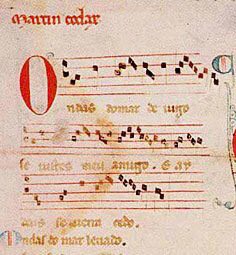 Martin codax
Ondas do mar de uigo
se uistes meu amigo. E ay
deus se uerra cedo.
Ondas do mar leuado.